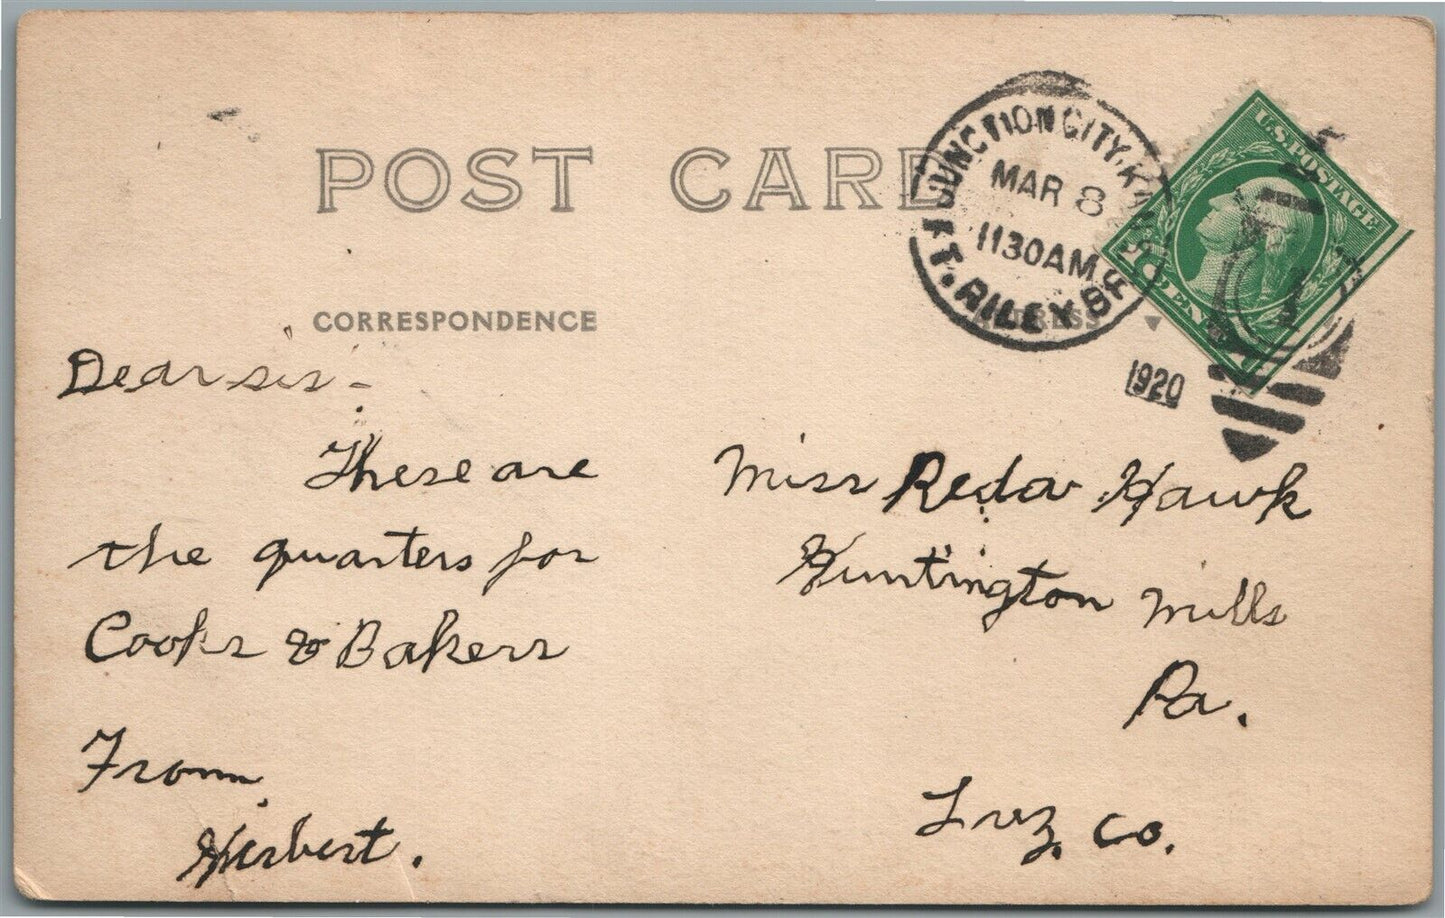 POST CARD
CORRESPONDENCE
Dear sis -
These are
the quarters for
Cooks & Bakers
From,
Herbert.
JUNCTION CITY, KANS.
MAR 8
1130AM
FT. RILEY BR.
1920
U.S. POSTAGE
ADDRESS
Miss Reda Hawk
Huntington Mills
Pa.
Luz. Co.